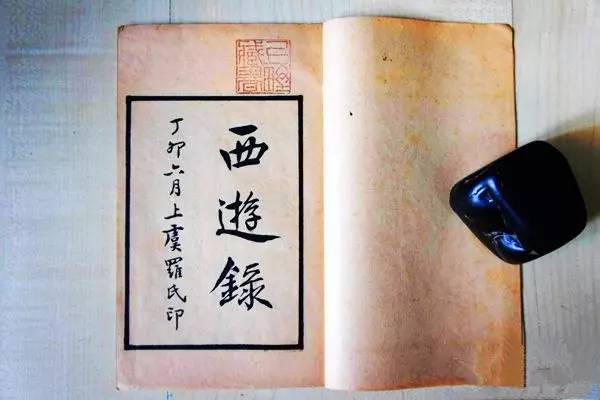 西遊錄
丁卯六月上虞羅氏印